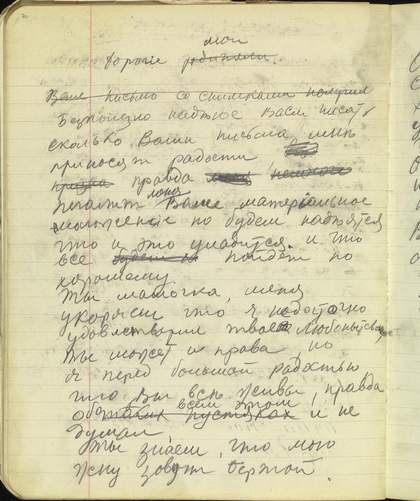 мои
дорогіе родители.
Ваше письмо со снимками получил
Безполезно вамъ писать
сколько Ваши письма мнѣ
приносят радости
правда
Ваше матеріальное
положеніе но будем надѣятся
что и это уладится. и что
все пойдет по
хорошему
Ты мамочка, меня
укоряеш что я недостаточно
удовлетворил твое Любопытство
Ты может и права, но
я перед большой радостью
что Вы всѣ живы, правда
о всем этом пустяках и не
думал.
Ты знаеш, что мою
жену зовут Бертой.